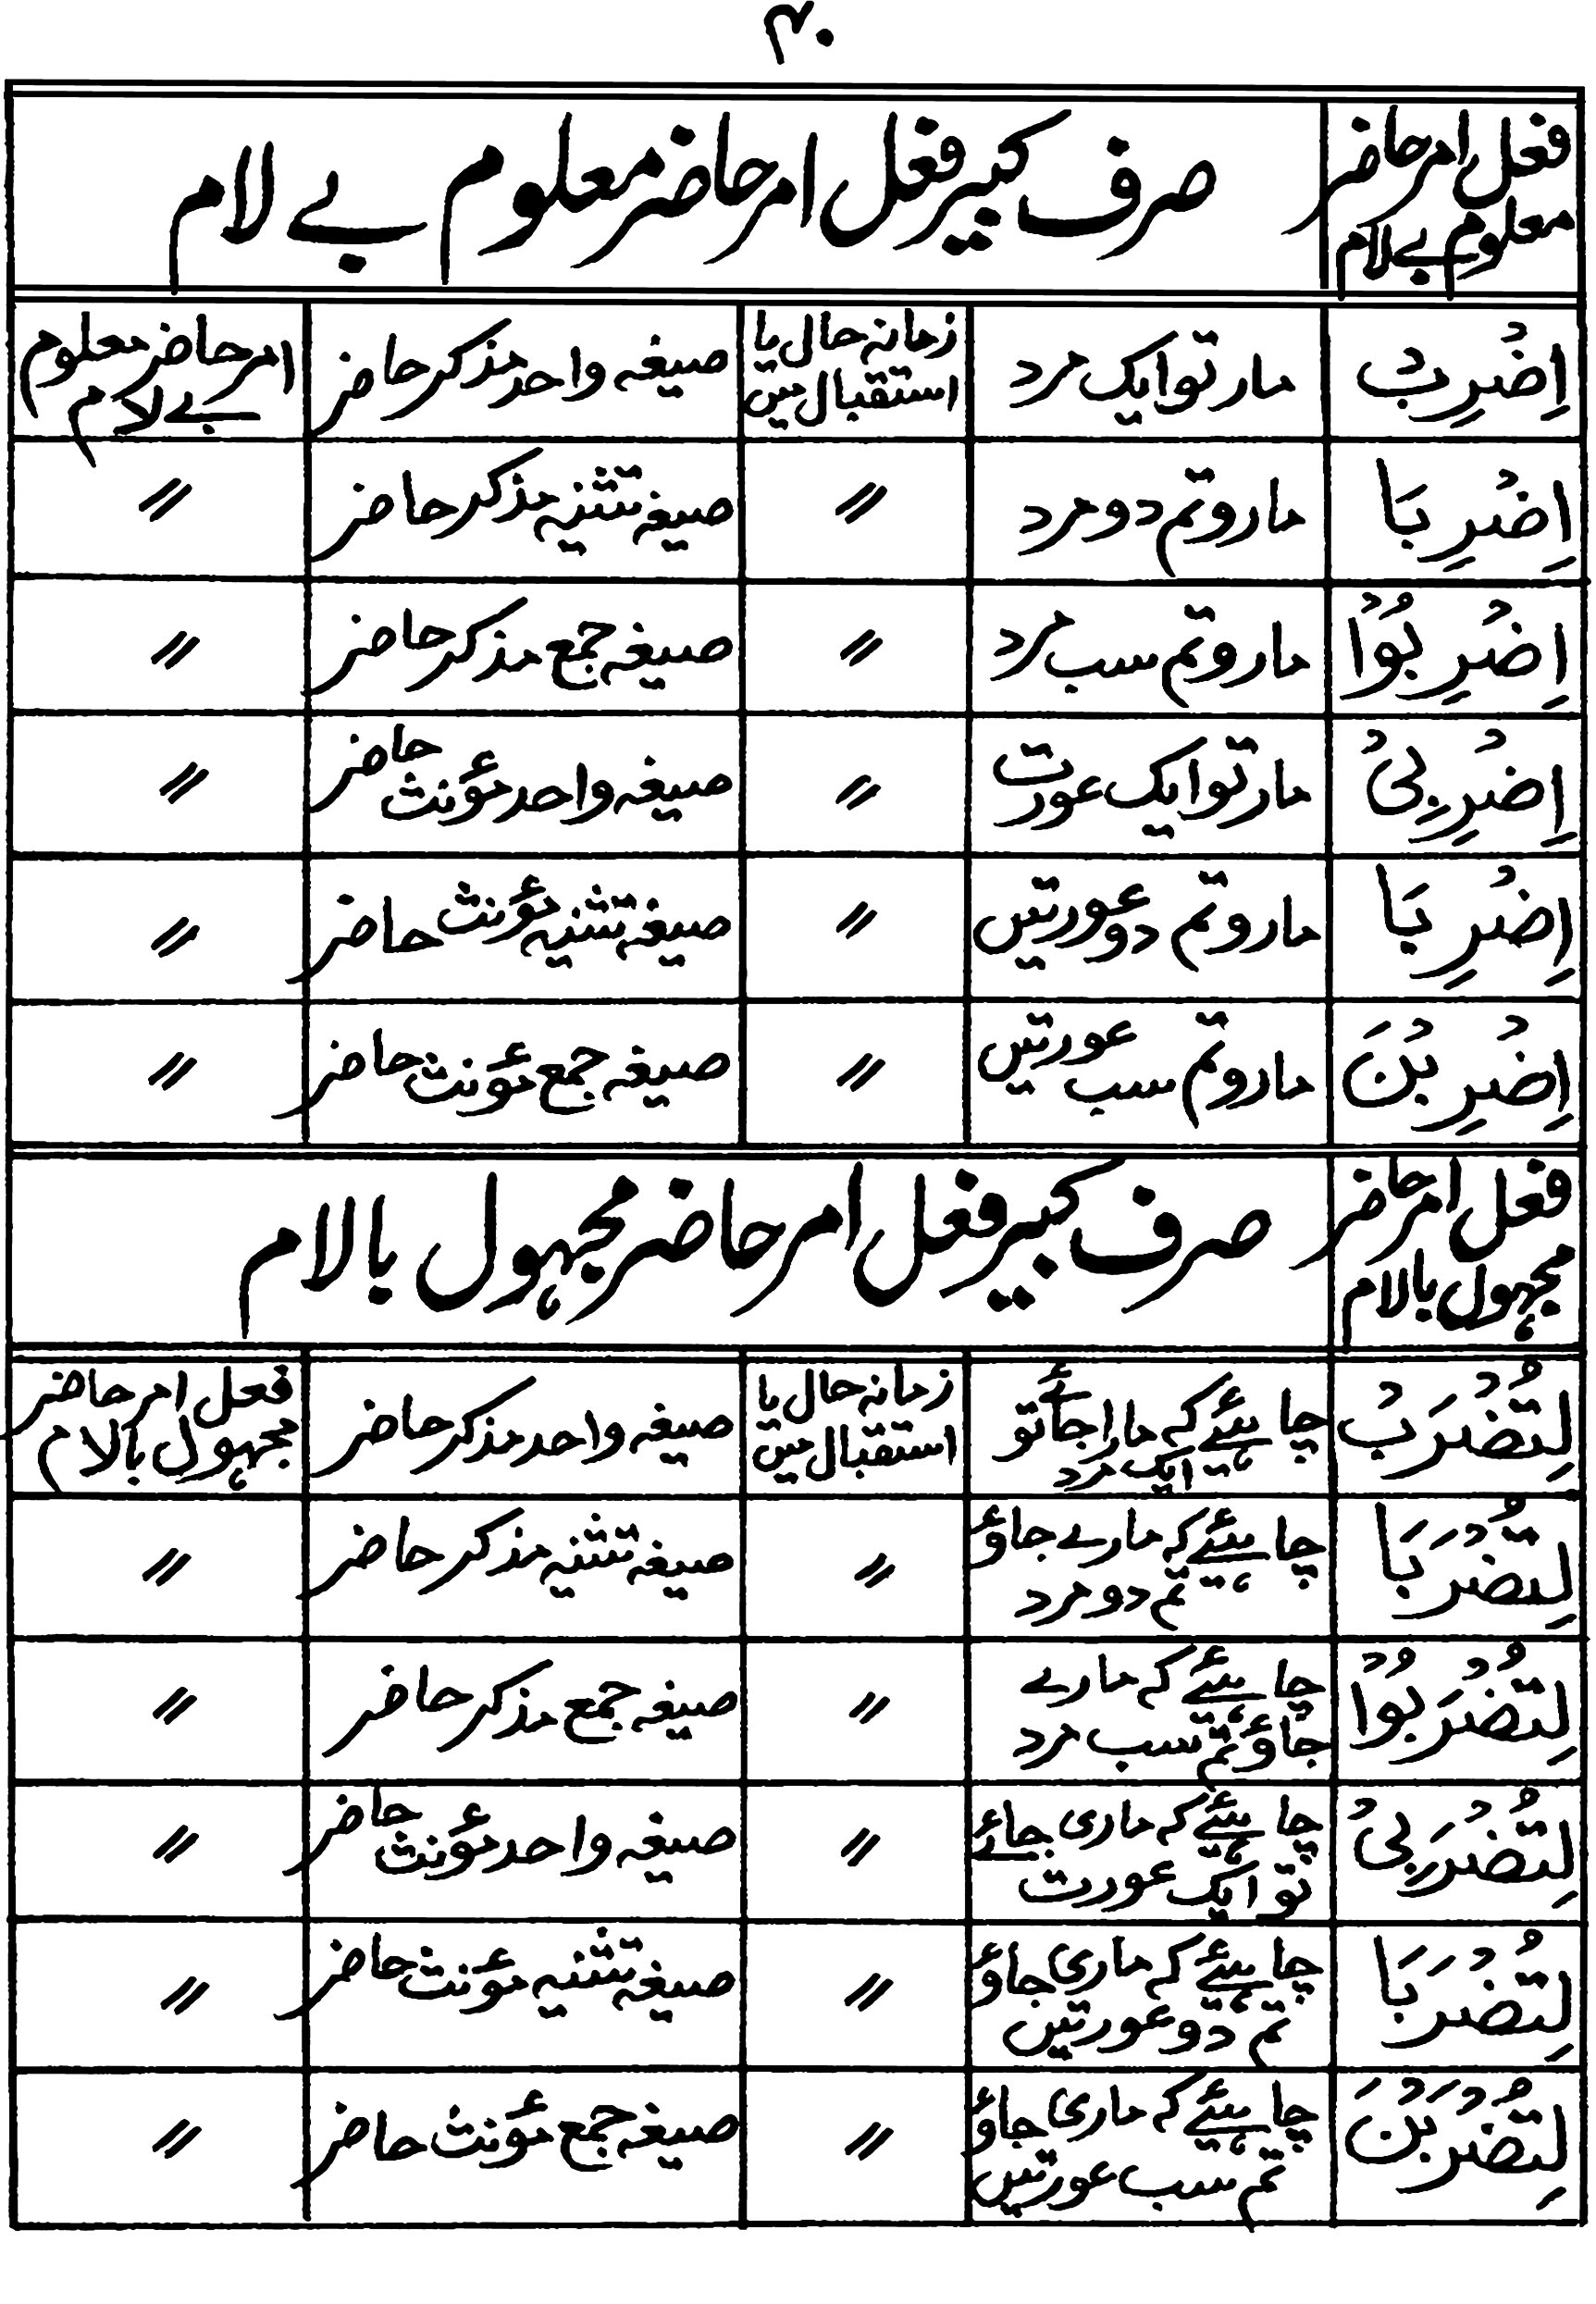 ۳۰
فعل امر حاضر معلوم بے لام | صرف کبیر فعل امر حاضر معلوم بے لام
اِضْرِبْ | مار تو ایک مرد | زمانہ حال یا استقبال میں | صیغہ واحد مذکر حاضر | امر حاضر معلوم بے لام
اِضْرِبَا | مارو تم دو مرد | // | صیغہ تثنیہ مذکر حاضر | //
اِضْرِبُوْا | مارو تم سب مرد | // | صیغہ جمع مذکر حاضر | //
اِضْرِبِیْ | مار تو ایک عورت | // | صیغہ واحد مؤنث حاضر | //
اِضْرِبَا | مارو تم دو عورتیں | // | صیغہ تثنیہ مؤنث حاضر | //
اِضْرِبْنَ | مارو تم سب عورتیں | // | صیغہ جمع مؤنث حاضر | //
فعل امر حاضر مجہول بالام | صرف کبیر فعل امر حاضر مجہول بالام
لِتُضْرَبْ | چاہیئے کہ مارا جائے تو ایک مرد | زمانہ حال یا استقبال میں | صیغہ واحد مذکر حاضر | فعل امر حاضر مجہول بالام
لِتُضْرَبَا | چاہیئے کہ مارے جاؤ تم دو مرد | // | صیغہ تثنیہ مذکر حاضر | //
لِتُضْرَبُوْا | چاہیئے کہ مارے جاؤ تم سب مرد | // | صیغہ جمع مذکر حاضر | //
لِتُضْرَبِیْ | چاہیئے کہ ماری جائے تو ایک عورت | // | صیغہ واحد مؤنث حاضر | //
لِتُضْرَبَا | چاہیئے کہ ماری جاؤ تم دو عورتیں | // | صیغہ تثنیہ مؤنث حاضر | //
لِتُضْرَبْنَ | چاہیئے کہ ماری جاؤ تم سب عورتیں | // | صیغہ جمع مؤنث حاضر | //